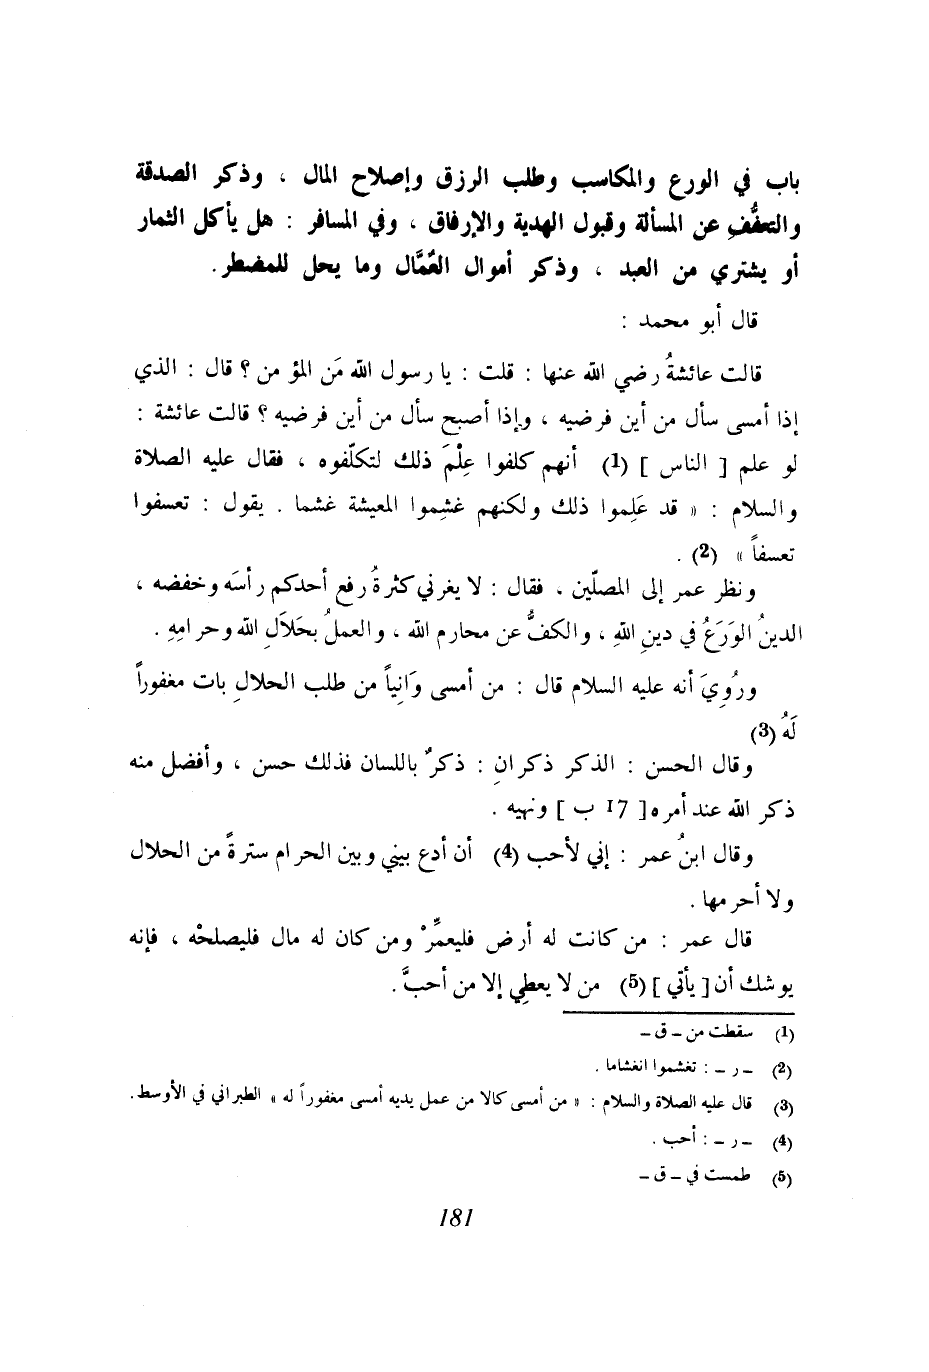 باب في الورع والمكاسب وطلب الرزق وإصلاح المال ، وذكر الصدقة
والتعفُّفِ عن المسألة وقبول الهدية والإرفاق ، وفي المسافر : هل يأكل الثمار
أو يشتري من العبد ، وذكر أموال العُمَّال وما يحل للمضطر .
قال أبو محمد :
قالت عائشةُ رضي الله عنها : قلت : يا رسول الله مَن المؤمن ؟ قال : الذي
إذا أمسى سأل من أين قرضيه ، وإذا أصبح سأل من أين قرضيه ؟ قالت عائشة :
لو علم [ الناس ] (1) أنهم كلفوا عِلْمَ ذلك لتكلّفوه ، فقال عليه الصلاة
والسلام : « قد عَلِموا ذلك ولكنهم غشِموا المعيشة غشما . يقول : تعسفوا
تعسفاً » (2) .
ونظر عمر إلى المصلّين ، فقال : لا يغرني كثرةُ رفع أحدكم رأسَه وخفضه ،
الدينُ الوَرَعُ في دينِ اللهِ ، والكفُّ عن محارم الله ، والعملُ بحَلاَلِ الله وحرامِهِ .
ورُوِيَ أنه عليه السلام قال : من أمسى وَانِياً من طلب الحلالِ بات مغفوراً
لَهُ (3)
وقال الحسن : الذكر ذكرانِ : ذكرٌ باللسان فذلك حسن ، وأفضل منه
ذكر الله عند أمره [ 17 ب ] ونهيه .
وقال ابنُ عمر : إني لأحب (4) أن أدع بيني وبين الحرام سترةً من الحلال
ولا أحرمها .
قال عمر : من كانت له أرض فليعمِّرْ ومن كان له مال فليصلحْه ، فإنه
يوشك أن [ يأتي ] (5) من لا يعطِي إلا من أحبَّ .
(1) سقطت من – ق –
(2) – ر – : تغشموا انغشاما .
(3) قال عليه الصلاة والسلام : « من أمسى كالا من عمل يديه أمسى مغفوراً له » الطبراني في الأوسط .
(4) – ر – : أحب .
(5) طمست في – ق –
181